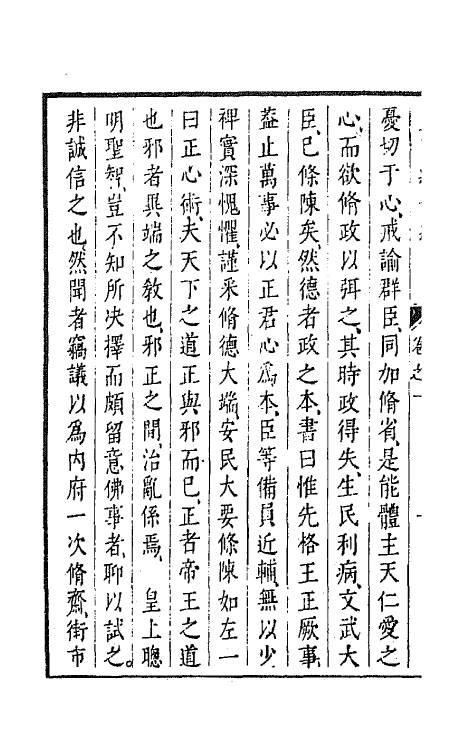 憂切于心戒諭群臣同加脩省是能體主天仁愛之
心而欲脩政以弭之其時政得失生民利病文武大
臣已條陳矣然德者政之本書曰惟先格王正厥事
葢止萬事必以正君心爲本臣等備員近輔無以少
裨實深愧懼謹采脩德大端安民大要條陳如左一
曰正心術夫天下之道正與邪而已正者帝王之道
也邪者異端之敎也邪正之間治亂係焉　皇上聰
明聖智豈不知所决擇而頗留意佛事者聊以試之
非誠信之也然聞者竊議以爲内府一次脩齋街市
卷之一